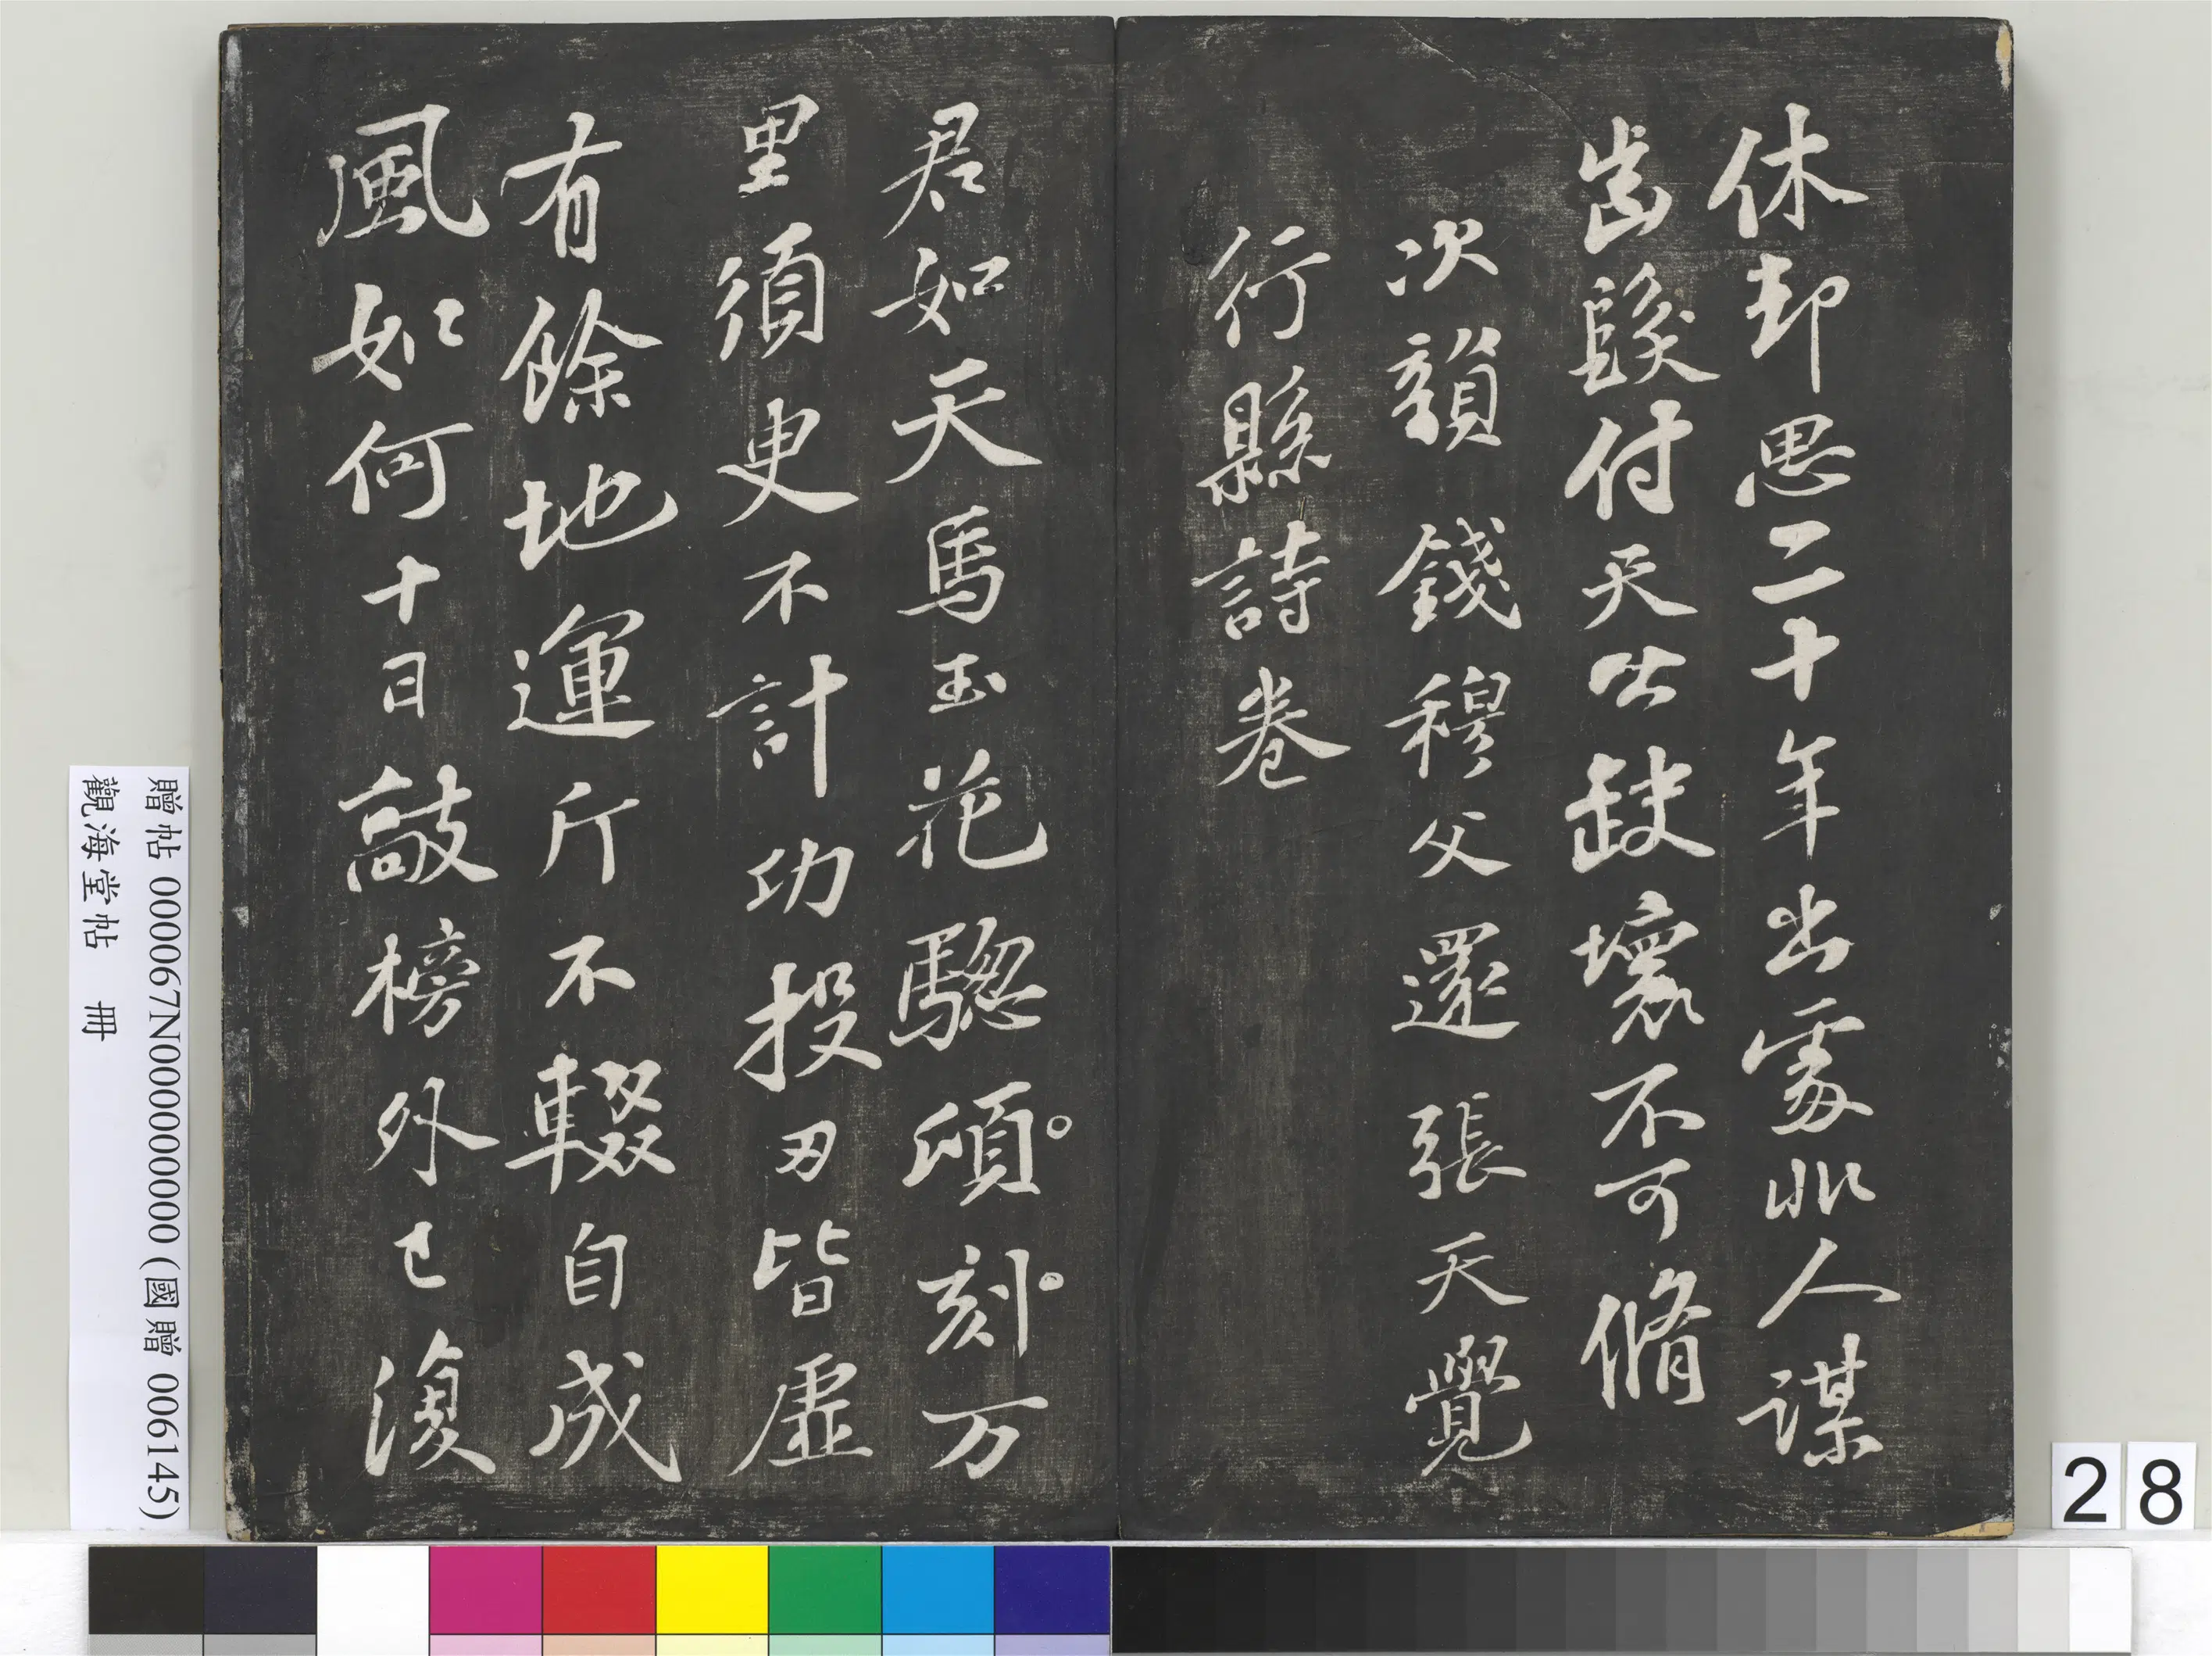 休却思二十年出處非人謀
齒髮付天公缺壞不可脩
次韻錢穆父還張天覺
行縣詩卷
君如天馬玉花驄頃刻万
里須更不計功投刃皆虛
有餘地運斤不輟自成
風如何十日敲榜外已復
贈帖 000067N000000000 (國贈 006145)
觀海堂帖 冊
28